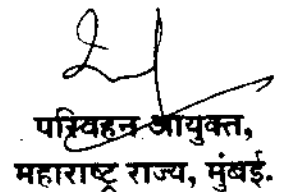 परिवहन आयुक्त,
महाराष्ट्र राज्य, मुंबई.